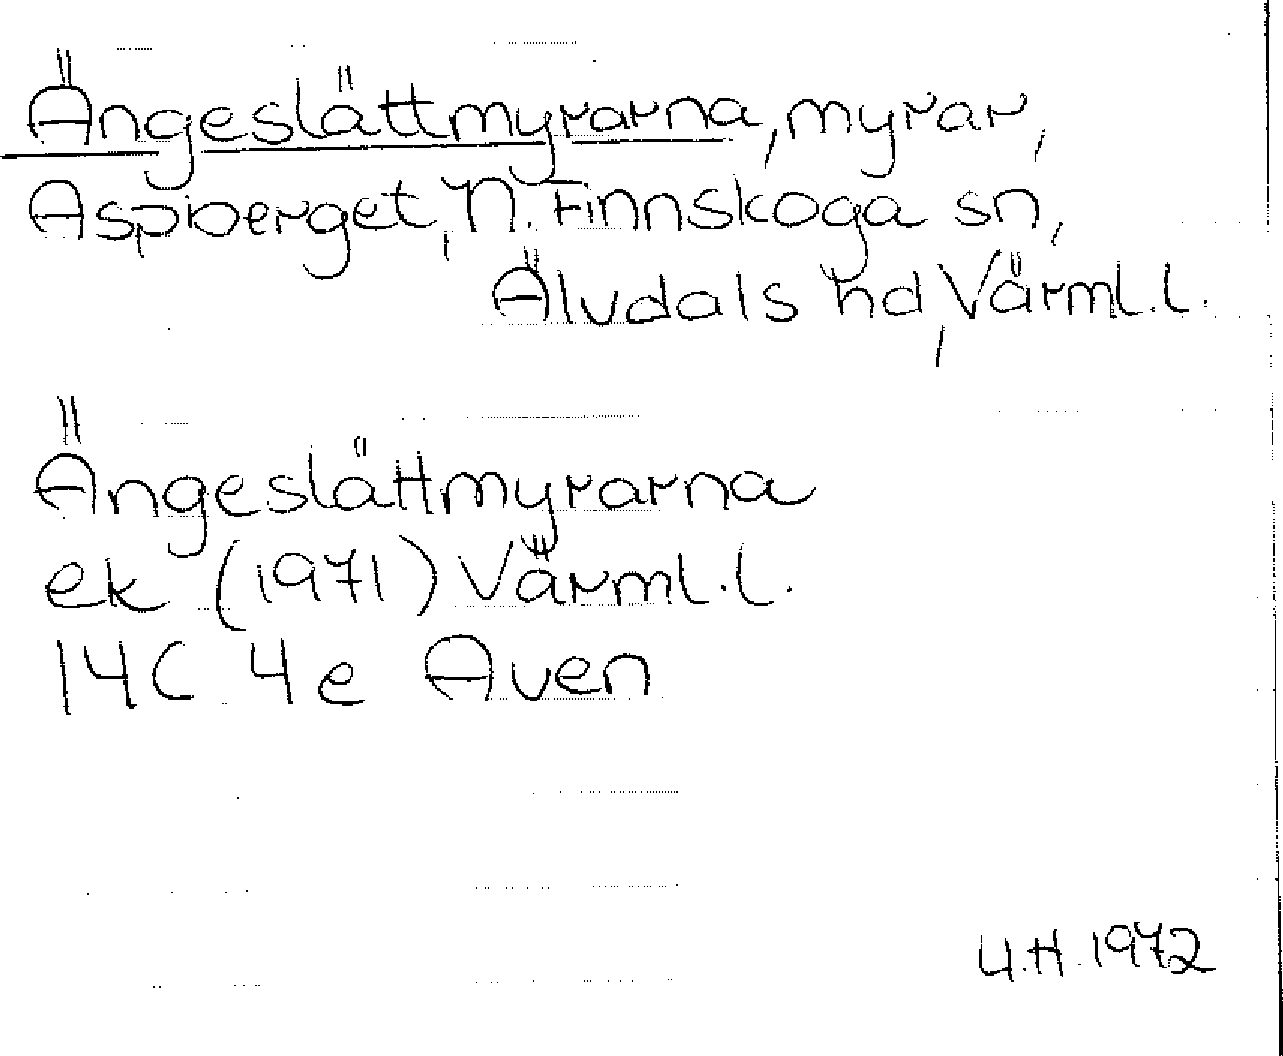 Ängeslättmyrarna, myrar,
Aspberget, N. Finnskoga sn,
Älvdals hd, Värml.l.
Ängeslättmyrarna
ek (1971) Värml.l.
14C 4e Aven
U.H. 1972